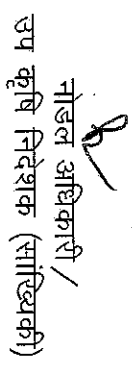 नोडल अधिकारी/
उप कृषि निदेशक (सांख्यिकी)